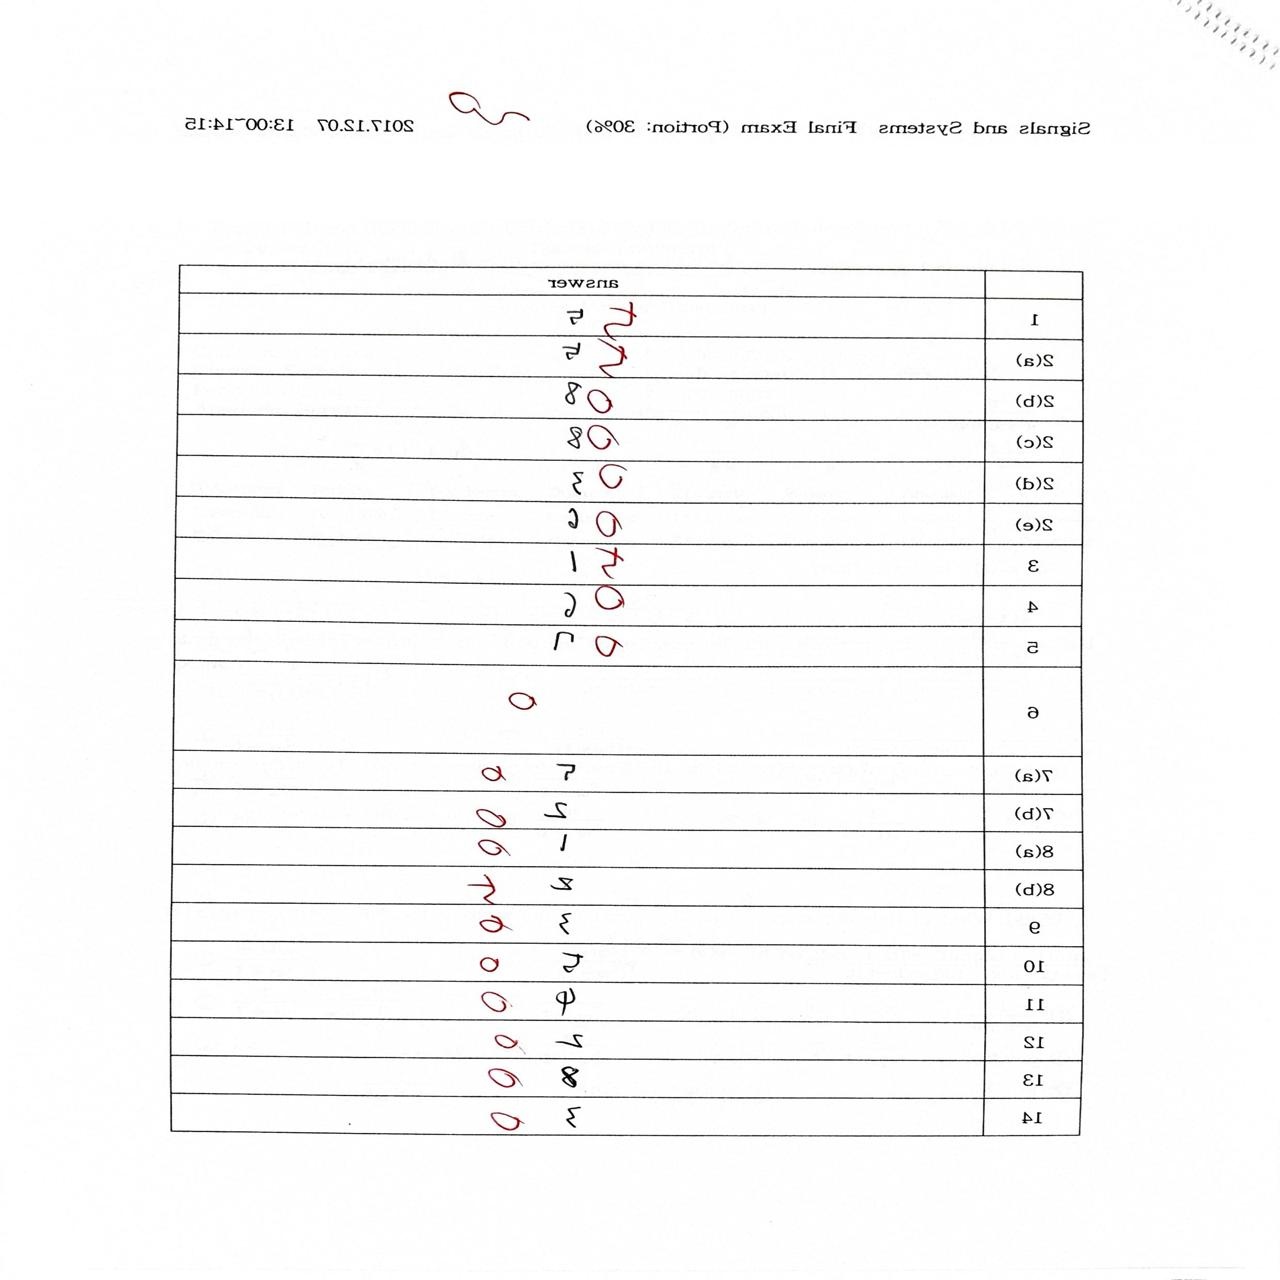 Signals and Systems Final Exam (Portion: 30%) 2017.12.07 13:00~14:15
answer
1 5
2(a) 5
2(b) 8
2(c) 8
2(d) 3
2(e)
3 1
4
5 7
6
7(a)
7(b)
8(a) 1
8(b)
9 3
10 5
11
12
13 8
14 3